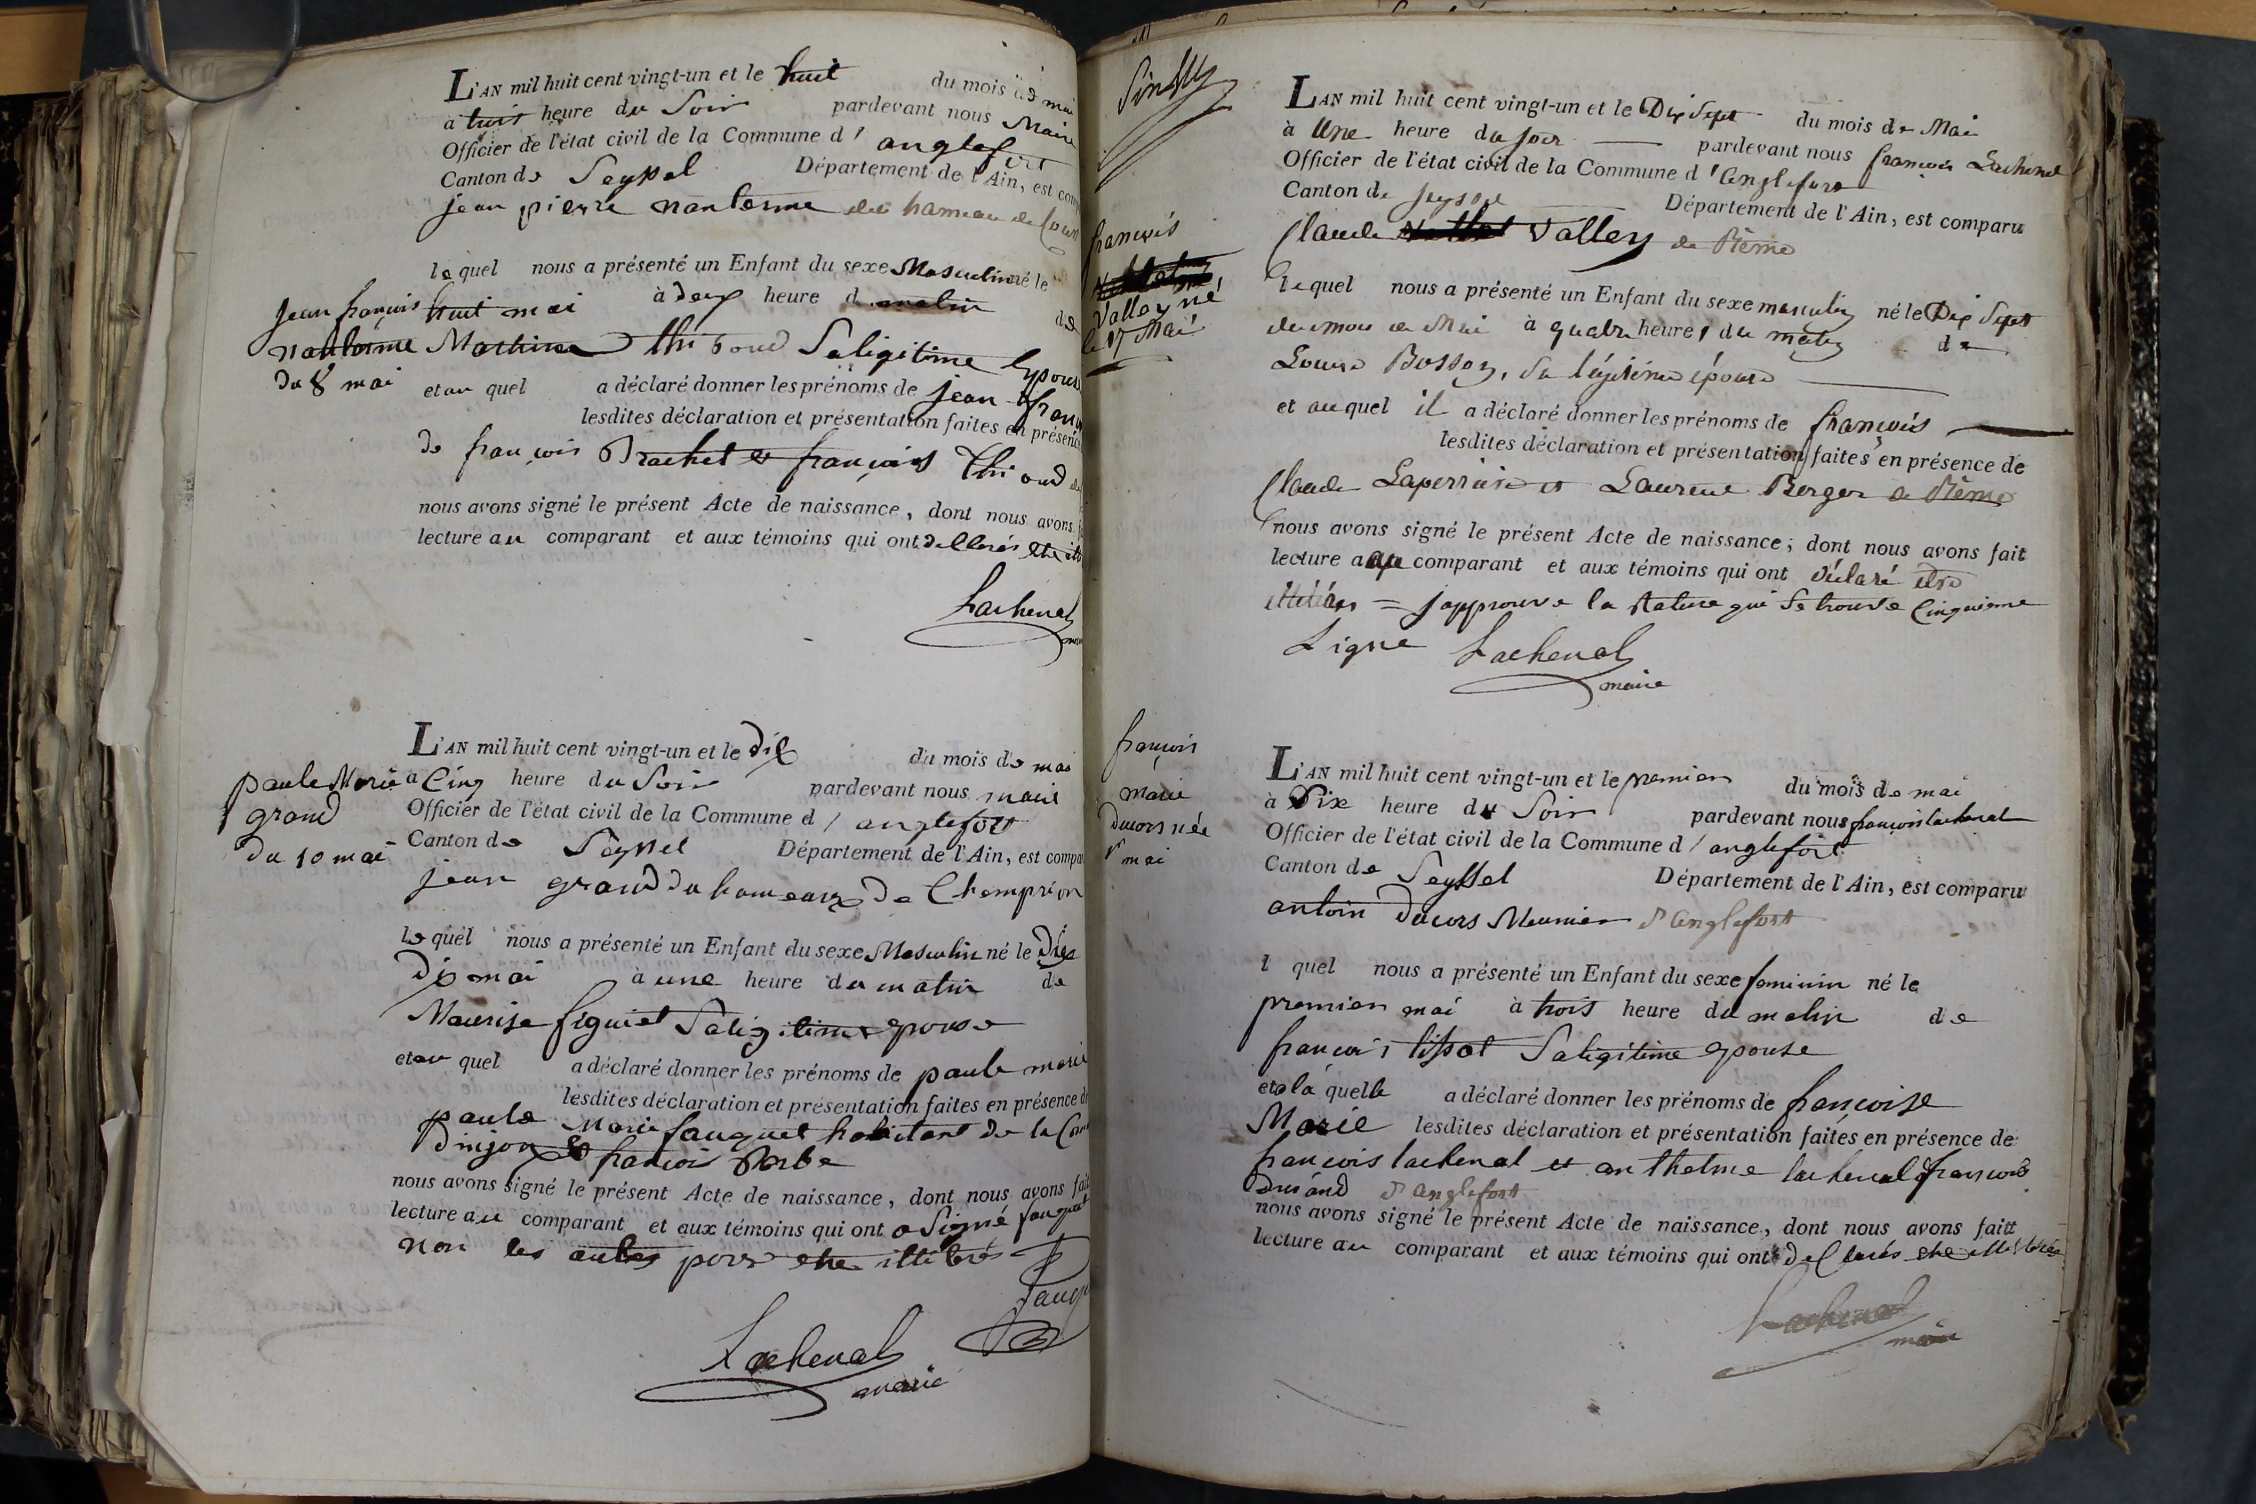 L'AN mil huit cent vingt-un et le huit du mois de mai
à trois heure du Soir pardevant nous Maire
Officier de l'état civil de la Commune d' anglefort
Canton de Seyssel Département de l'Ain, est comp
jean pierre nanterme du hameau de
lequel nous a présenté un Enfant du sexe Masculin né le
huit mai à deux heure d matin de
Martine thi Sa ligitime Epouse
et au quel a déclaré donner les prénoms de jean franç
lesdites déclaration et présentation faites en présence
de françois Brachet et françois
nous avons signé le présent Acte de naissance, dont nous avons
lecture au comparant et aux témoins qui ont dellerés etre
Lachenal
jean françois
nanterme
du 8 mai
L'AN mil huit cent vingt-un et le dix du mois de mai
à Cinq heure du Soir pardevant nous maire
Officier de l'état civil de la Commune d' anglefort
Canton de Seyssel Département de l'Ain, est compa
jean grand du hameaux de Chemprion
lequel nous a présenté un Enfant du sexe Masculin né le
dix mai à une heure du matin de
Maurise figuiet Sa ligitime epouse
et au quel a déclaré donner les prénoms de paule marie
lesdites déclaration et présentation faites en présence de
paule Marie fauguet habitant de la
et françois
nous avons signé le présent Acte de naissance, dont nous avons fait
lecture au comparant et aux témoins qui ont a Signé fauguet
non les autres pour etre ittiterés
Lachenal
maire
paule Marie
grand
du 10 mai
françois
Valley né
le 17 Mai
L'AN mil huit cent vingt-un et le Dix Sept du mois de Mai
à Une heure du soir pardevant nous françois Lachenal
Officier de l'état civil de la Commune d' Anglefort
Canton de Seyssel Département de l'Ain, est comparu
Claude Valley de Rème
lequel nous a présenté un Enfant du sexe masculin né le Dix Sept
du mois de Mai à quatre heures du matin de
Louise Bosson, sa légitime épouse
et auquel il a déclaré donner les prénoms de françois
lesdites déclaration et présentation faites en présence de
Claude Laperrière et Laurent Berger de Rème
nous avons signé le présent Acte de naissance; dont nous avons fait
lecture au comparant et aux témoins qui ont déclaré être
= J'approuve la Rature qui se trouve Cinquieme
Ligne Lachenal
maire
françois
marie
Ducors née
1er mai
L'AN mil huit cent vingt-un et le premier du mois de mai
à Dix heure du Soir pardevant nous françois lachenal
Officier de l'état civil de la Commune d' anglefort
Canton de Seyssel Département de l'Ain, est comparu
antoin Ducors Meunier d'anglefort
l quel nous a présenté un Enfant du sexe feminin né le
premier mai à trois heure du matin de
francois tissot Sa ligitime epouse
et a la quelle a déclaré donner les prénoms de francoise
Marie lesdites déclaration et présentation faites en présence de
francois lachenal et anthelme lachenal francois
Durand d'anglefort
nous avons signé le présent Acte de naissance, dont nous avons fait
lecture au comparant et aux témoins qui ont declarés etre
Lachenal
maire